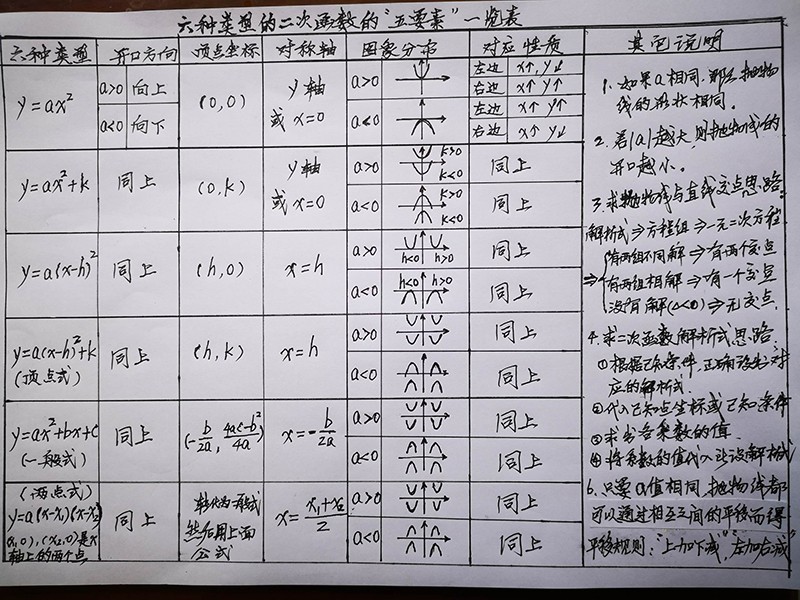 六种类型的二次函数的"五要素"一览表
六种类型 开口方向 顶点坐标 对称轴 图象分布 对应性质 其它说明
y=ax² a>0 向上 (0,0) y轴 a>0 左边 x↑,y↓
或 x=0 右边 x↑ y↑
a<0 向下 a<0 左边 x↑ y↑
右边 x↑ y↓
y=ax²+k 同上 (0,k) y轴 a>0 k>0 k<0 同上
或 x=0 a<0 k>0 k<0 同上
y=a(x-h)² 同上 (h,0) x=h a>0 h<0 h>0 同上
a<0 h<0 h>0 同上
y=a(x-h)²+k 同上 (h,k) x=h a>0 同上
(顶点式) a<0 同上
y=ax²+bx+c 同上 (-b/2a, 4ac-b²/4a) x=-b/2a a>0 同上
(一般式) a<0 同上
(两点式) 转化为一般式 a>0 同上
y=a(x-x₁)(x-x₂) 同上 然后用上面 x=x₁+x₂/2
,0),(x₂,0)是x 公式 a<0 同上
轴上的两个点
1. 如果a相同,那么抛物
线的形状相同。
2. 若|a|越大,则抛物线的
开口越小。
3. 求抛物线与直线交点思路
解析式⇒方程组⇒一元二次方程
有两组不同解⇒有两个交点
⇒有两组相同解⇒有一个交点
没有解(Δ<0)⇒无交点.
4. 求二次函数解析式思路.
①根据已知条件,正确设出对
应的解析式.
②代入已知点坐标或已知条件
③求出各系数的值.
④将系数的值代入所设解析式
6. 只要a值相同,抛物线都
可以通过相互之间的平移而得
平移规则:"上加下减","左加右减"